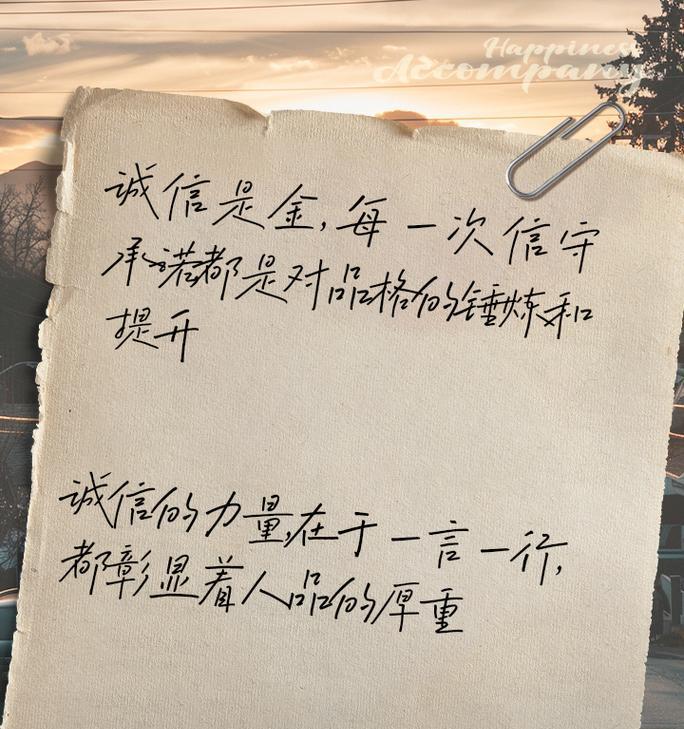 Happiness
Accompany
诚信是金,每一次信守
承诺都是对品格的锤炼和
提升
诚信的力量,在于一言一行,
都彰显着人品的厚重